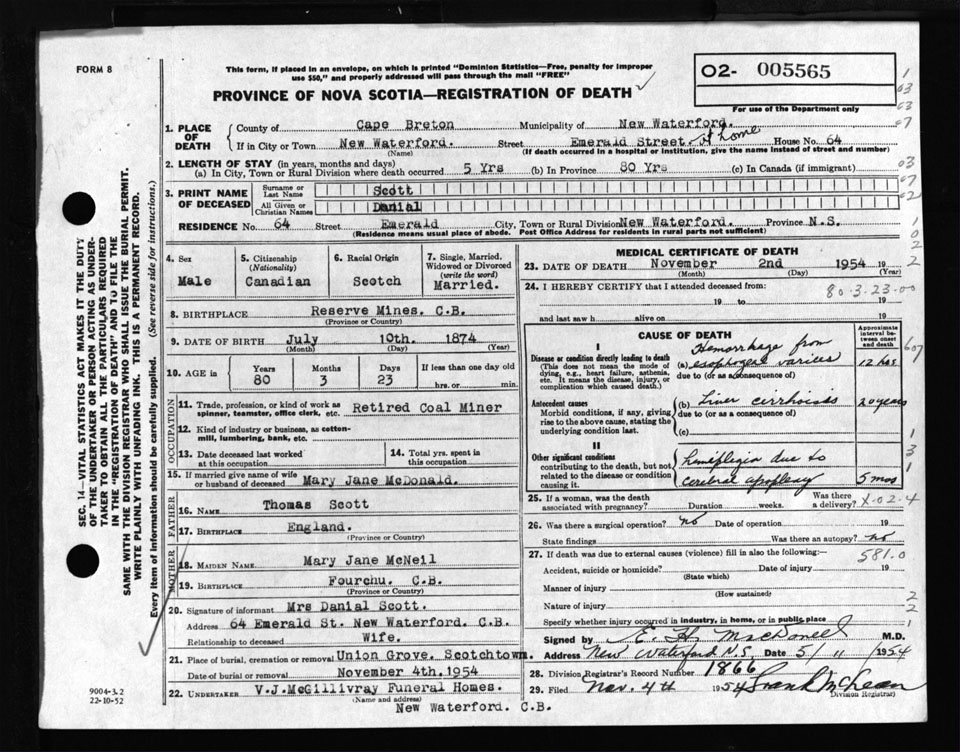 FORM 8
This form, if placed in an envelope, on which is printed "Dominion Statistics—Free, penalty for improper
use $50," and properly addressed will pass through the mail "FREE"
02- 005565
For use of the Department only
PROVINCE OF NOVA SCOTIA—REGISTRATION OF DEATH
1. PLACE OF DEATH County of Cape Breton Municipality of New Waterford.
If in City or Town New Waterford. Street Emerald Street. At home House No. 64
(Name) (If death occurred in a hospital or institution, give the name instead of street and number)
2. LENGTH OF STAY (in years, months and days)
(a) In City, Town or Rural Division where death occurred 5 Yrs (b) In Province 80 Yrs (c) In Canada (if immigrant)
3. PRINT NAME OF DECEASED Surname or Last Name Scott
All Given or Christian Names Danial
RESIDENCE No. 64 Street Emerald City, Town or Rural Division New Waterford. Province N.S.
(Residence means usual place of abode. Post Office Address for residents in rural parts not sufficient)
4. Sex Male
5. Citizenship (Nationality) Canadian
6. Racial Origin Scotch
7. Single, Married, Widowed or Divorced (write the word) Married.
8. BIRTHPLACE Reserve Mines. C.B.
(Province or Country)
9. DATE OF BIRTH July 10th. 1874
(Month) (Day) (Year)
10. AGE in Years Months Days If less than one day old
80 3 23 hrs. or min.
OCCUPATION
11. Trade, profession, or kind of work as spinner, teamster, office clerk, etc. Retired Coal Miner
12. Kind of industry or business, as cotton-mill, lumbering, bank, etc.
13. Date deceased last worked at this occupation
14. Total yrs. spent in this occupation
15. If married give name of wife or husband of deceased Mary Jane McDonald.
FATHER
16. NAME Thomas Scott
17. BIRTHPLACE England.
(Province or Country)
MOTHER
18. MAIDEN NAME Mary Jane McNeil
19. BIRTHPLACE Fourchu. C.B.
(Province or Country)
20. Signature of informant Mrs Danial Scott.
Address 64 Emerald St. New Waterford. C.B.
Relationship to deceased Wife.
21. Place of burial, cremation or removal Union Grove. Scotchtown.
Date of burial or removal November 4th.1954
22. UNDERTAKER V.J.McGillivray Funeral Homes.
(Name and address)
New Waterford. C.B.
MEDICAL CERTIFICATE OF DEATH
23. DATE OF DEATH November 2nd 1954 19
(Month) (Day) (Year)
24. I HEREBY CERTIFY that I attended deceased from: 80-3-23-00
19 to 19
and last saw h alive on 19
CAUSE OF DEATH
Approximate interval between onset and death
I
Disease or condition directly leading to death
(This does not mean the mode of dying, e.g., heart failure, asthenia, etc. It means the disease, injury, or complication which caused death.)
Hemorrhage from
(a) esophogeal varices 12 hrs
due to (or as a consequence of)
Antecedent causes
Morbid conditions, if any, giving rise to the above cause, stating the underlying condition last.
(b) Liver cirrhosis 20 years
due to (or as a consequence of)
(c)
II
Other significant conditions
contributing to the death, but not related to the disease or condition causing it.
hemiplegia due to
cerebral apoplexy 5 mos
25. If a woman, was the death associated with pregnancy? Duration weeks. Was there a delivery? X-02-4
26. Was there a surgical operation? no Date of operation 19
State findings Was there an autopsy? no
27. If death was due to external causes (violence) fill in also the following: 581.0
Accident, suicide or homicide? Date of injury 19
(State which)
Manner of injury
(How sustained)
Nature of injury
Specify whether injury occurred in industry, in home, or in public place
Signed by E. H. MacDonell M.D.
Address New Waterford N.S. Date 5/11/1954
28. Division Registrar's Record Number 1866
29. Filed Nov. 4th 1954 Frank McLean
Division Registrar
SEC. 14—VITAL STATISTICS ACT MAKES IT THE DUTY
OF THE UNDERTAKER OR PERSON ACTING AS UNDER-
TAKER TO OBTAIN ALL THE PARTICULARS REQUIRED
IN THE "REGISTRATION OF DEATH" AND TO FILE THE
SAME WITH THE DIVISION REGISTRAR WHO SHALL ISSUE THE BURIAL PERMIT.
WRITE PLAINLY WITH UNFADING INK. THIS IS A PERMANENT RECORD.
Every item of information should be carefully supplied. (See reverse side for instructions.)
9004-3.2
22-10-52
1
03
03
07
03
07
02
1
02
2
607
1
3
1
2
2
1